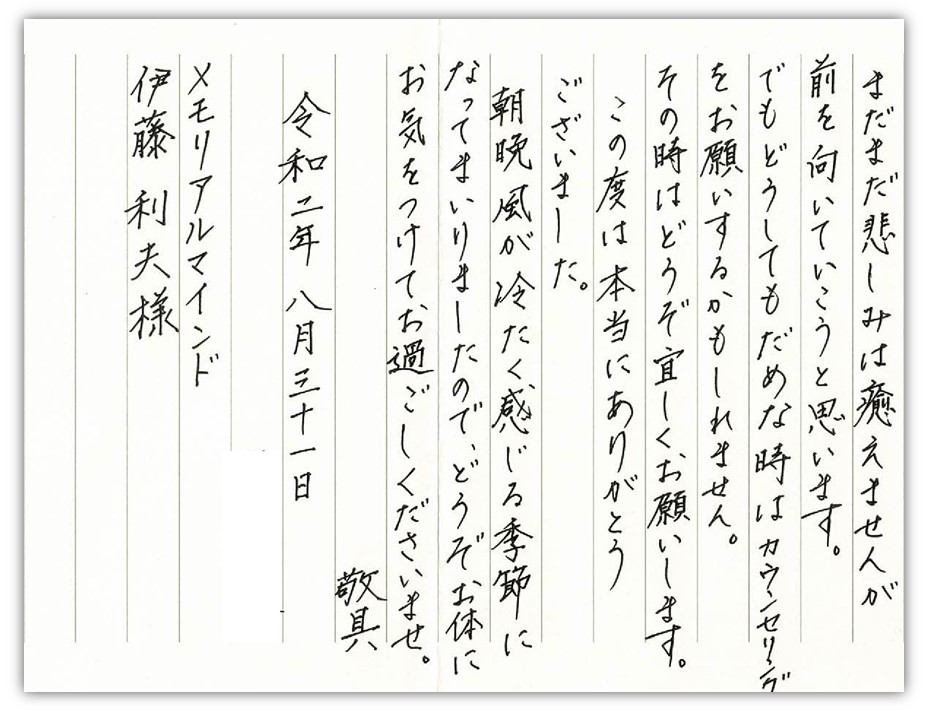 まだまだ悲しみは癒えませんが
前を向いていこうと思います。
でもどうしてもだめな時はカウンセリング
をお願いするかもしれません。
その時はどうぞ宜しくお願いします。
この度は本当にありがとう
ございました。
朝晩風が冷たく感じる季節に
なってまいりましたので、どうぞお体に
お気をつけてお過ごしくださいませ。
敬具
令和二年八月三十一日
メモリアルマインド
伊藤利夫様